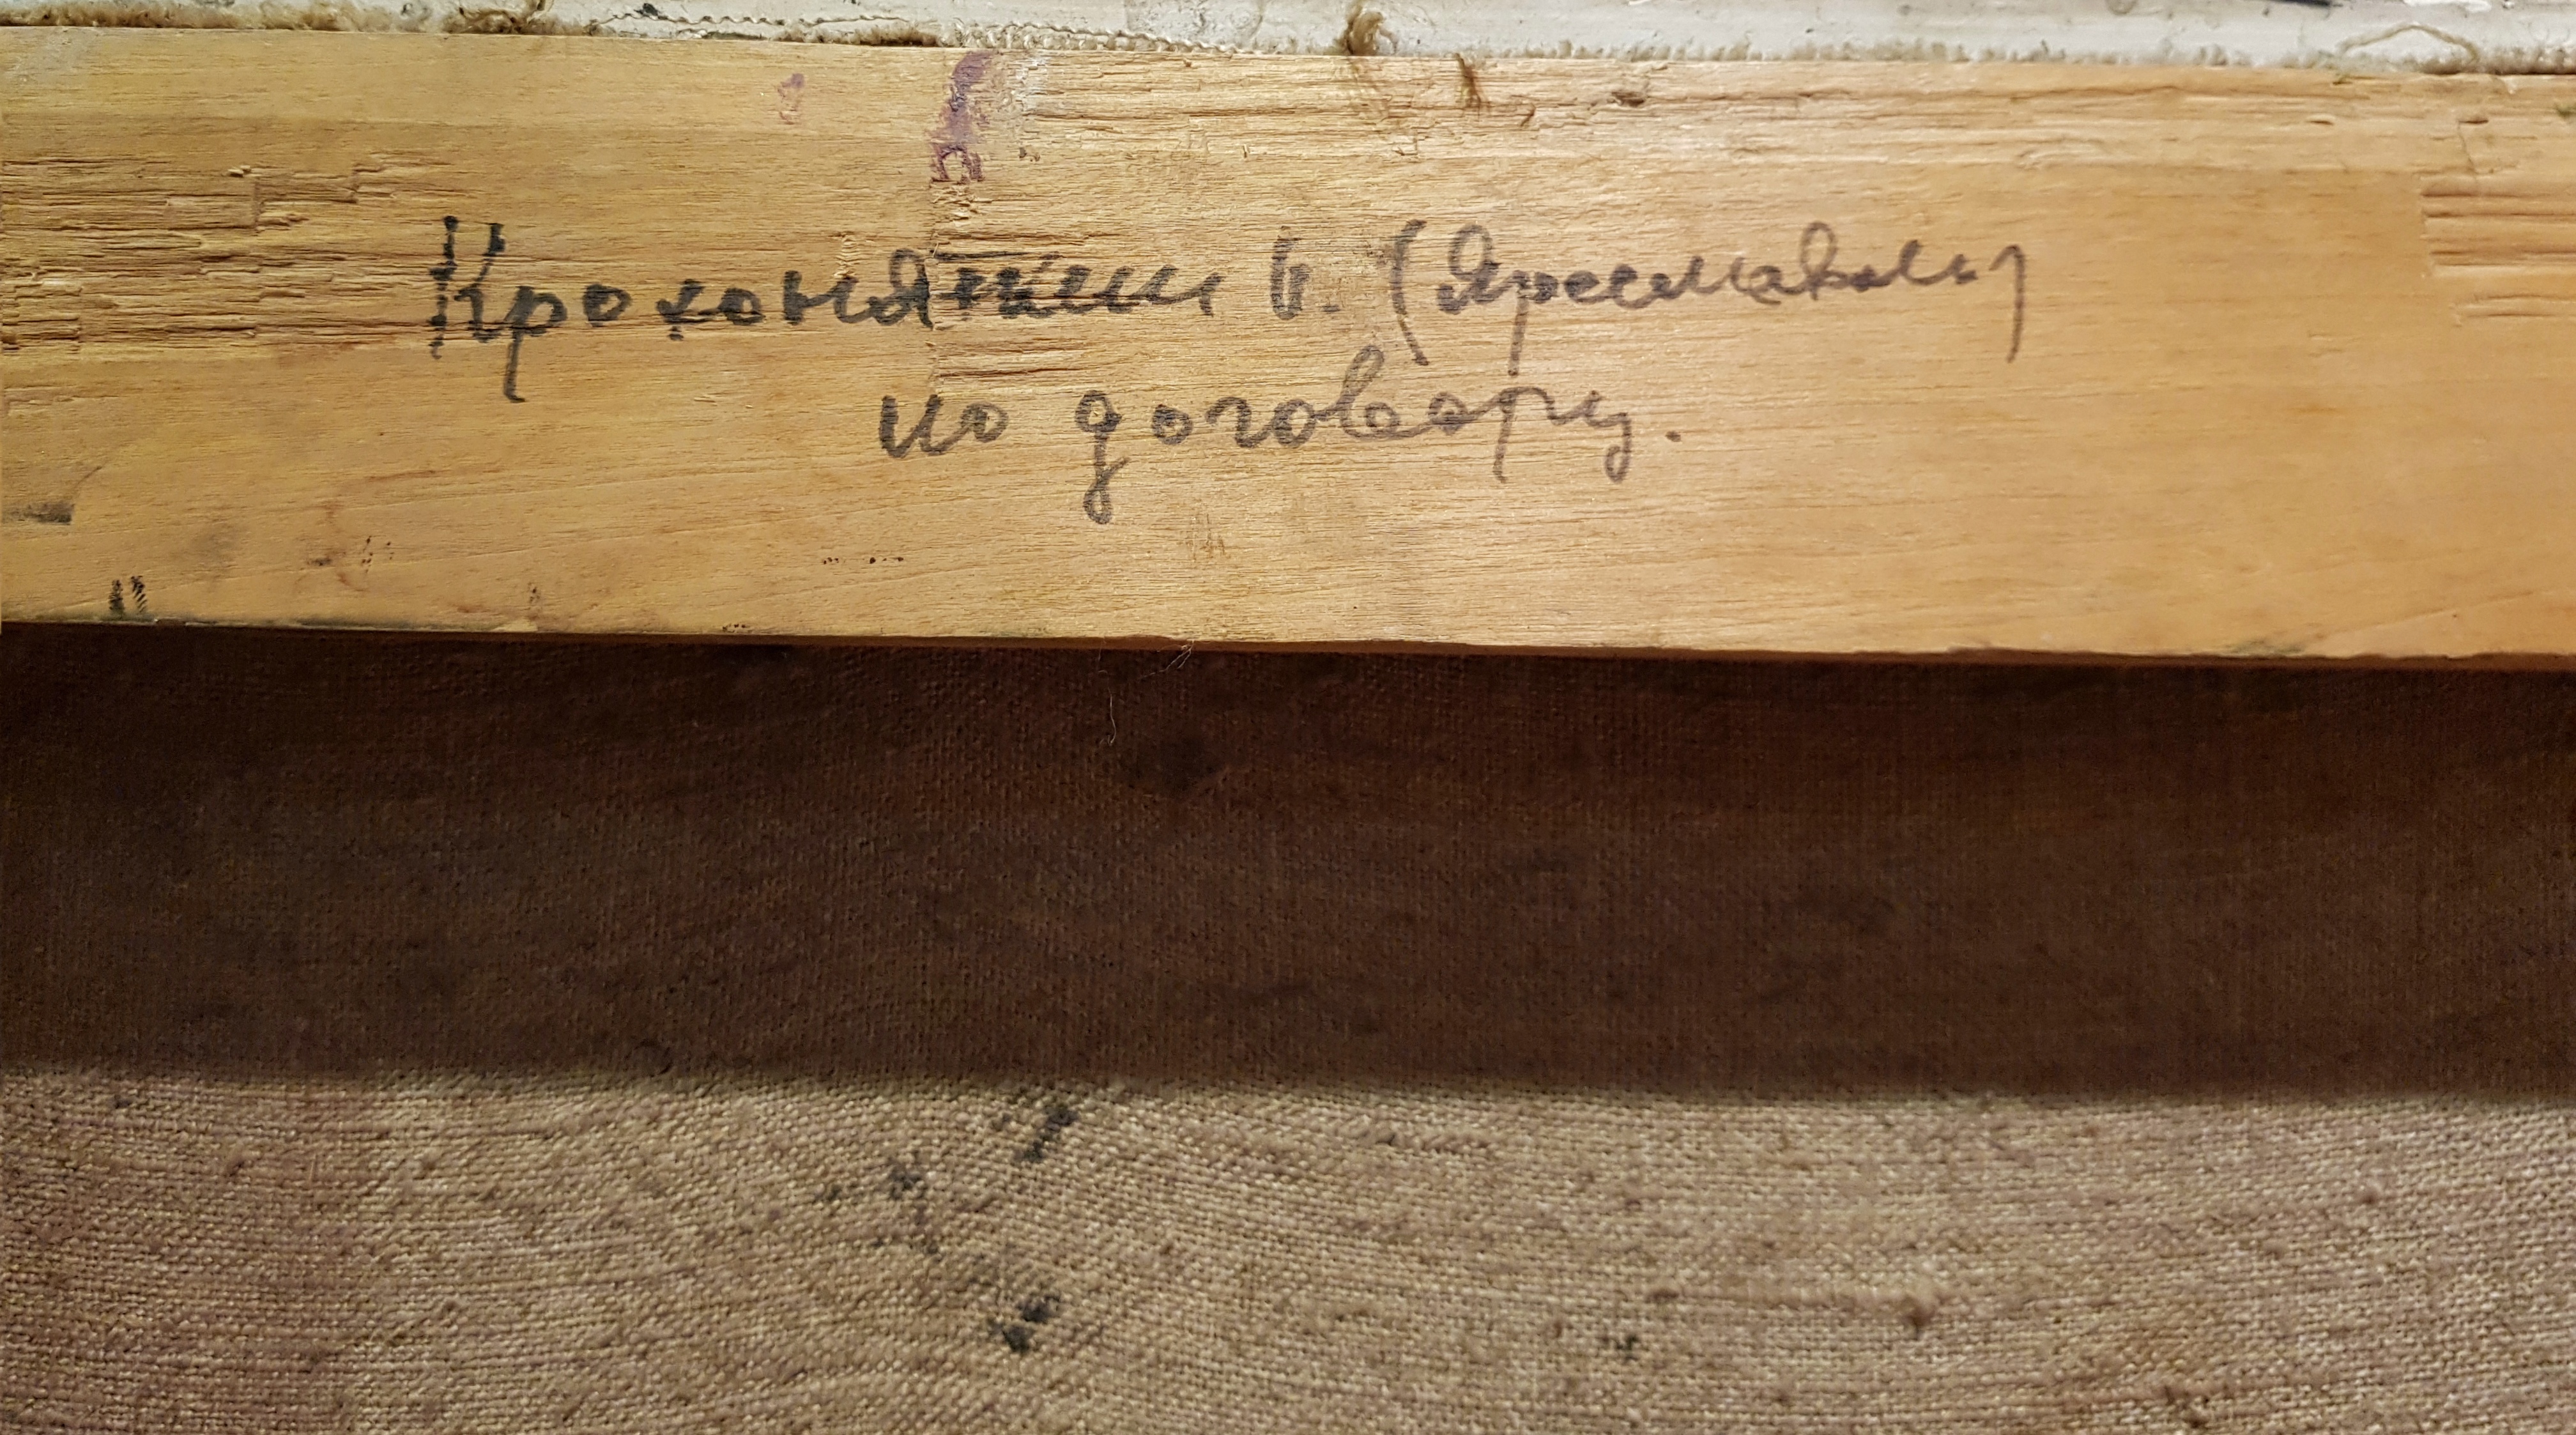 Крохоняткин И. (Ярославль)
по договору.